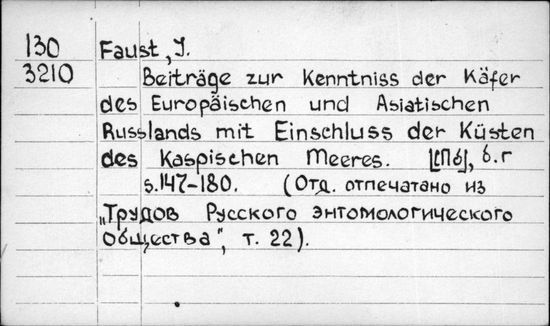 130 Faust, J.
3210 Beiträge zur Kenntniss der Käfer
des Europäischen und Asiatischen
Russlands mit Einschluss der Küsten
des Kaspischen Meeres. [СПб], б.г
s.147-180. (Отд. отпечатано из
"Трудов Русского энтомологического
общества", т. 22).